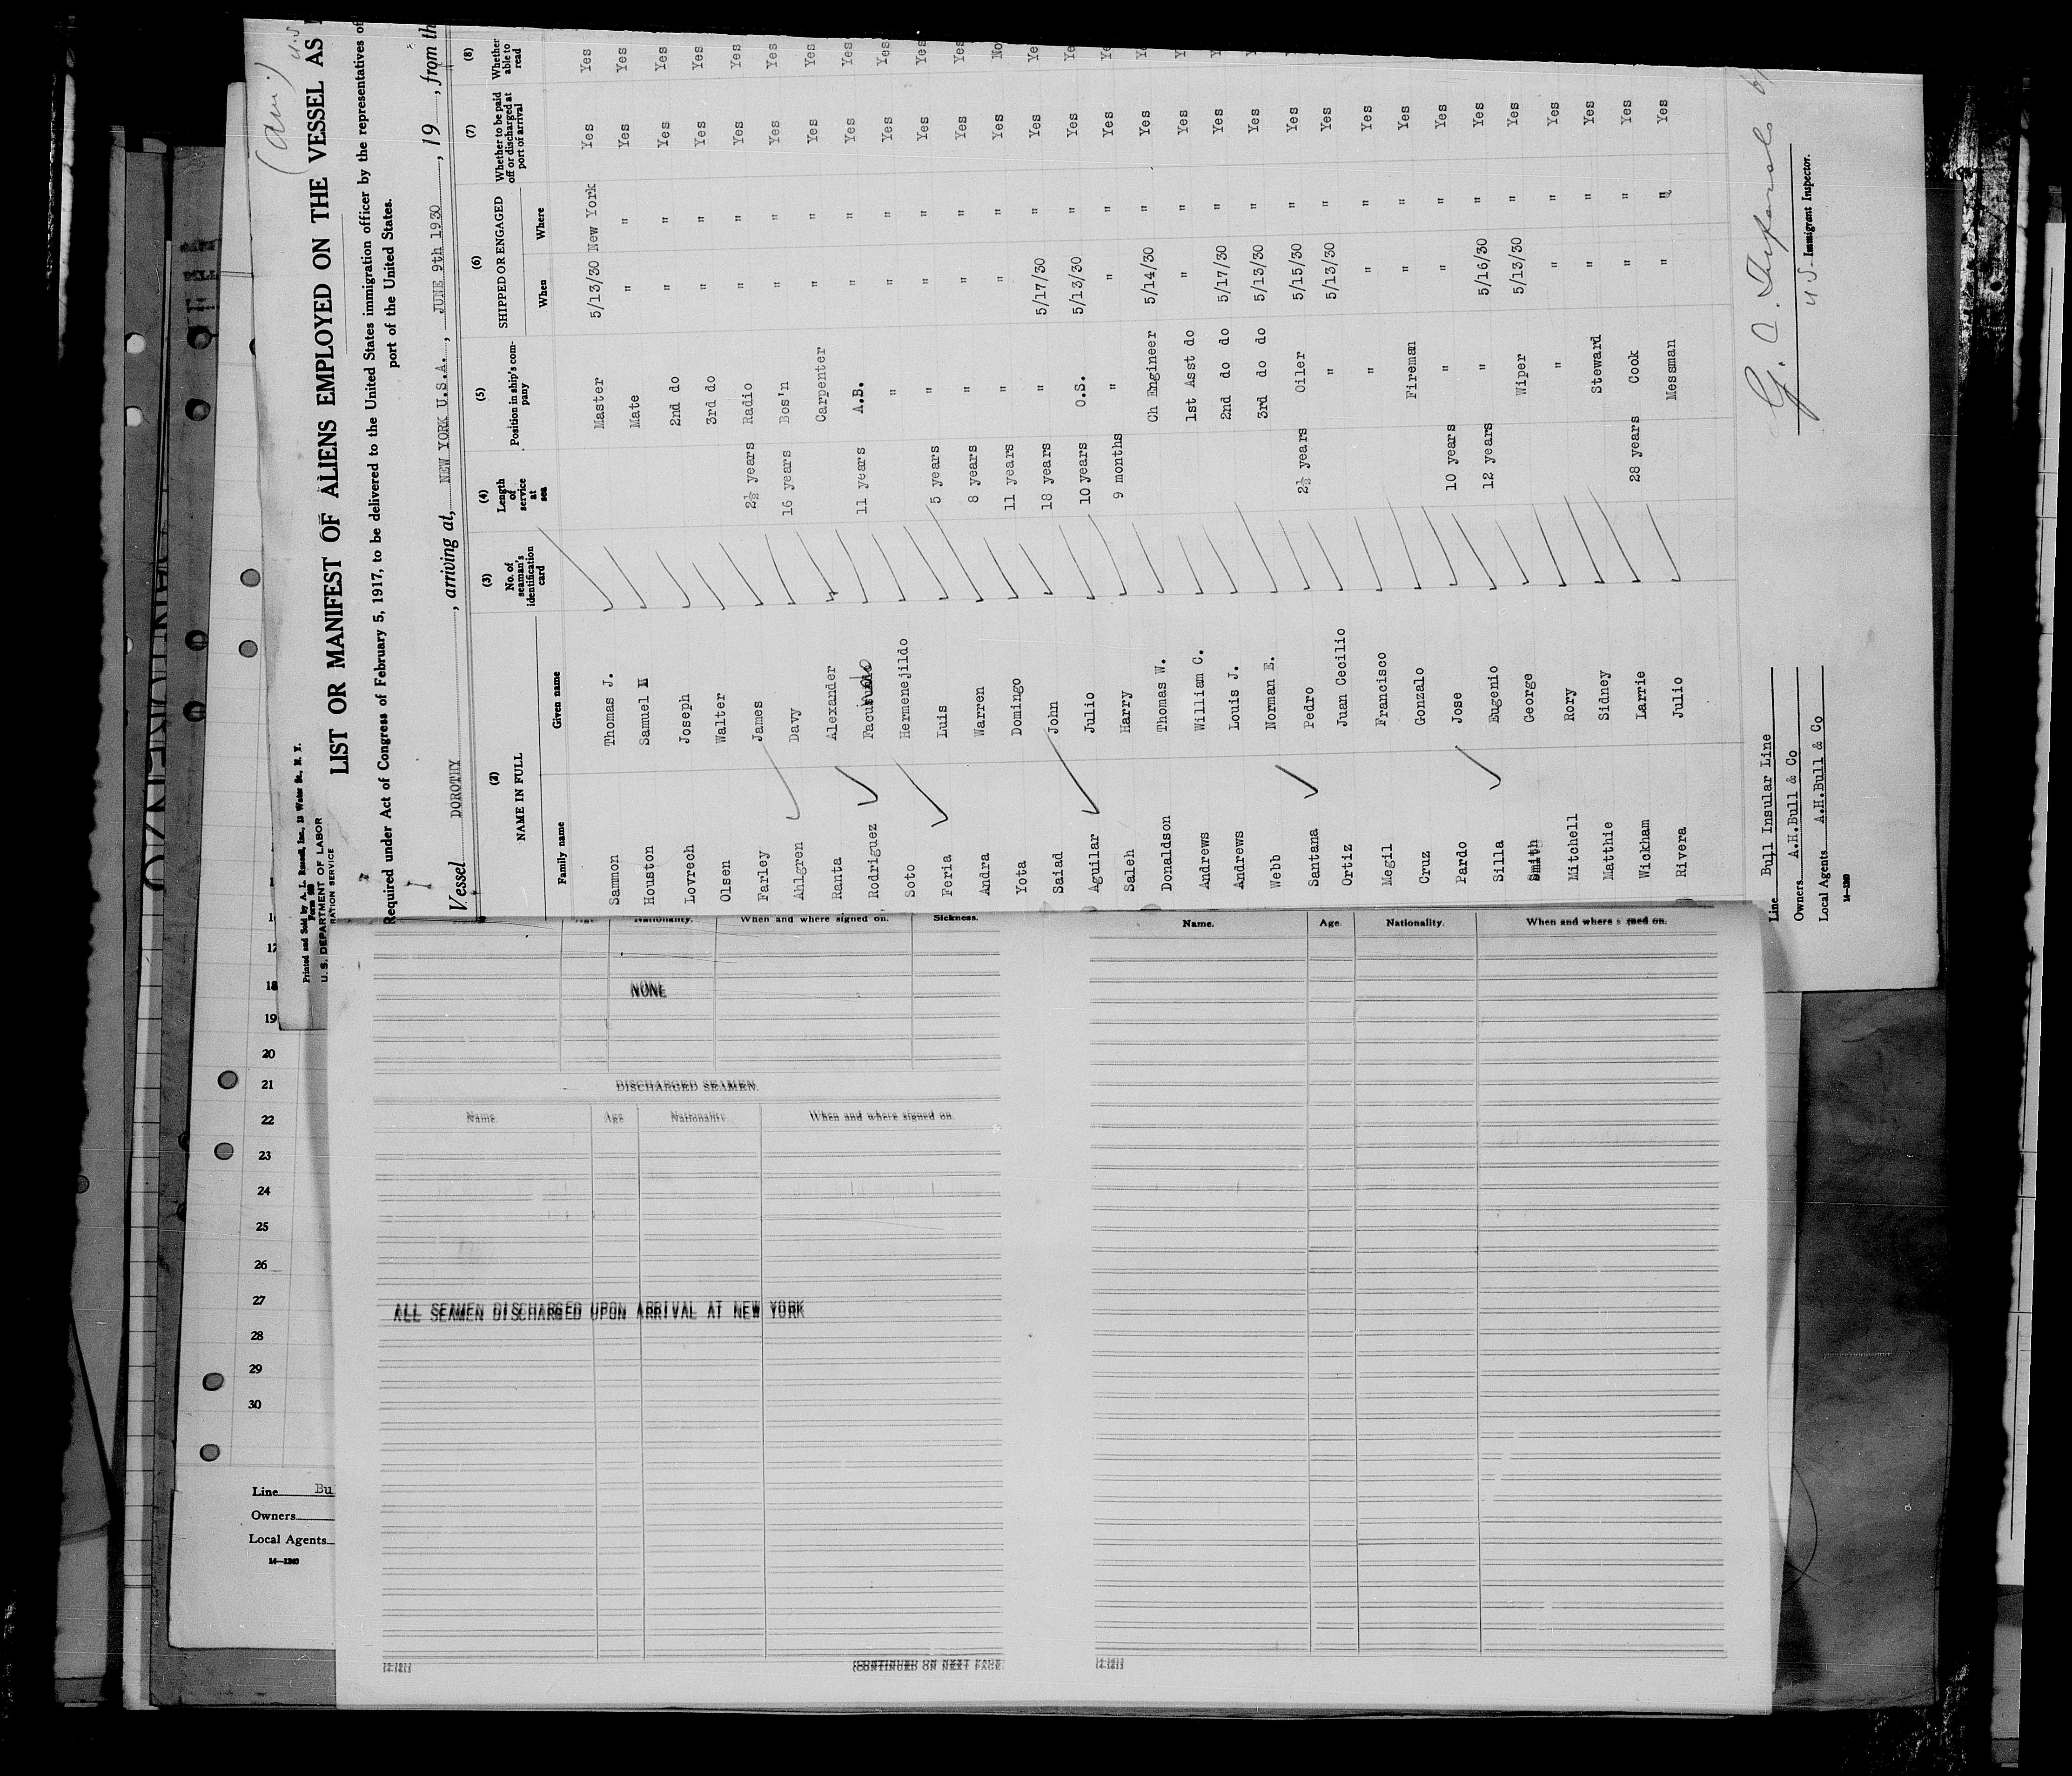 (am.)
Printed and Sold by A. L. Russell, Inc., 13 Water St., N. Y.
U. S. DEPARTMENT OF LABOR
RATION SERVICE
LIST OR MANIFEST OF ALIENS EMPLOYED ON THE VESSEL AS
Required under Act of Congress of February 5, 1917, to be delivered to the United States immigration officer by the representatives of
port of the United States.
Vessel DOROTHY, arriving at, NEW YORK U.S.A., JUNE 9th 1930, 19, from th
(2) (3) (4) (5) (6) (7) (8)
NAME IN FULL No. of seaman's identification card Length of service at sea Position in ship's company SHIPPED OR ENGAGED Whether to be paid off or discharged at port of arrival Whether able to read
Family name Given name When Where
Sammon Thomas J. Master 5/13/30 New York Yes Yes
Houston Samuel M Mate " " Yes Yes
Lovrech Joseph 2nd do " " Yes Yes
Olsen Walter 3rd do " " Yes Yes
Farley James 2½ years Radio " " Yes Yes
Ahlgren Davy 16 years Bos'n " " Yes Yes
Ranta Alexander Carpenter " " Yes Yes
Rodriguez Facundo 11 years A.B. " " Yes Yes
Soto Hermenejildo " " " Yes Yes
Feria Luis 5 years " " " Yes Yes
Andra Warren 8 years " " " Yes Yes
Yota Domingo 11 years " " " Yes No
Saiad John 18 years " 5/17/30 " Yes Ye
Aguilar Julio 10 years O.S. 5/13/30 " Yes Ye
Saleh Harry 9 months " " " Yes Ye
Donaldson Thomas W. Ch Engineer 5/14/30 " Yes Ye
Andrews William C. 1st Asst do " " Yes Y
Andrews Louis J. 2nd do do 5/17/30 " Yes Y
Webb Norman E. 3rd do do 5/13/30 " Yes
Santana Pedro 2½ years Oiler 5/15/30 " Yes
Ortiz Juan Cecilio " 5/13/30 " Yes
Megil Francisco " " " Yes
Cruz Gonzalo Fireman " " Yes
Pardo Jose 10 years " " " Yes
Silla Eugenio 12 years " 5/16/30 " Yes
Smith George Wiper 5/13/30 " Yes
Mitchell Rory " " " Yes
Matthie Sidney Steward " " Yes
Wickham Larrie 28 years Cook " " Yes
Rivera Julio Messman " " Yes
Line Bull Insular Line
Owners A.H.Bull & Co
Local Agents A.H.Bull & Co
14-1240
U S Immigrant Inspector.
Age. Nationality. When and where signed on. Sickness.
NONE
DISCHARGED SEAMEN.
Name. Age Nationality. When and where signed on.
ALL SEAMEN DISCHARGED UPON ARRIVAL AT NEW YORK
(CONTINUED ON NEXT PAGE
Name. Age. Nationality. When and where signed on.
18
19
20
21
22
23
24
25
26
27
28
29
30
Line Bu
Owners
Local Agents
14—1240